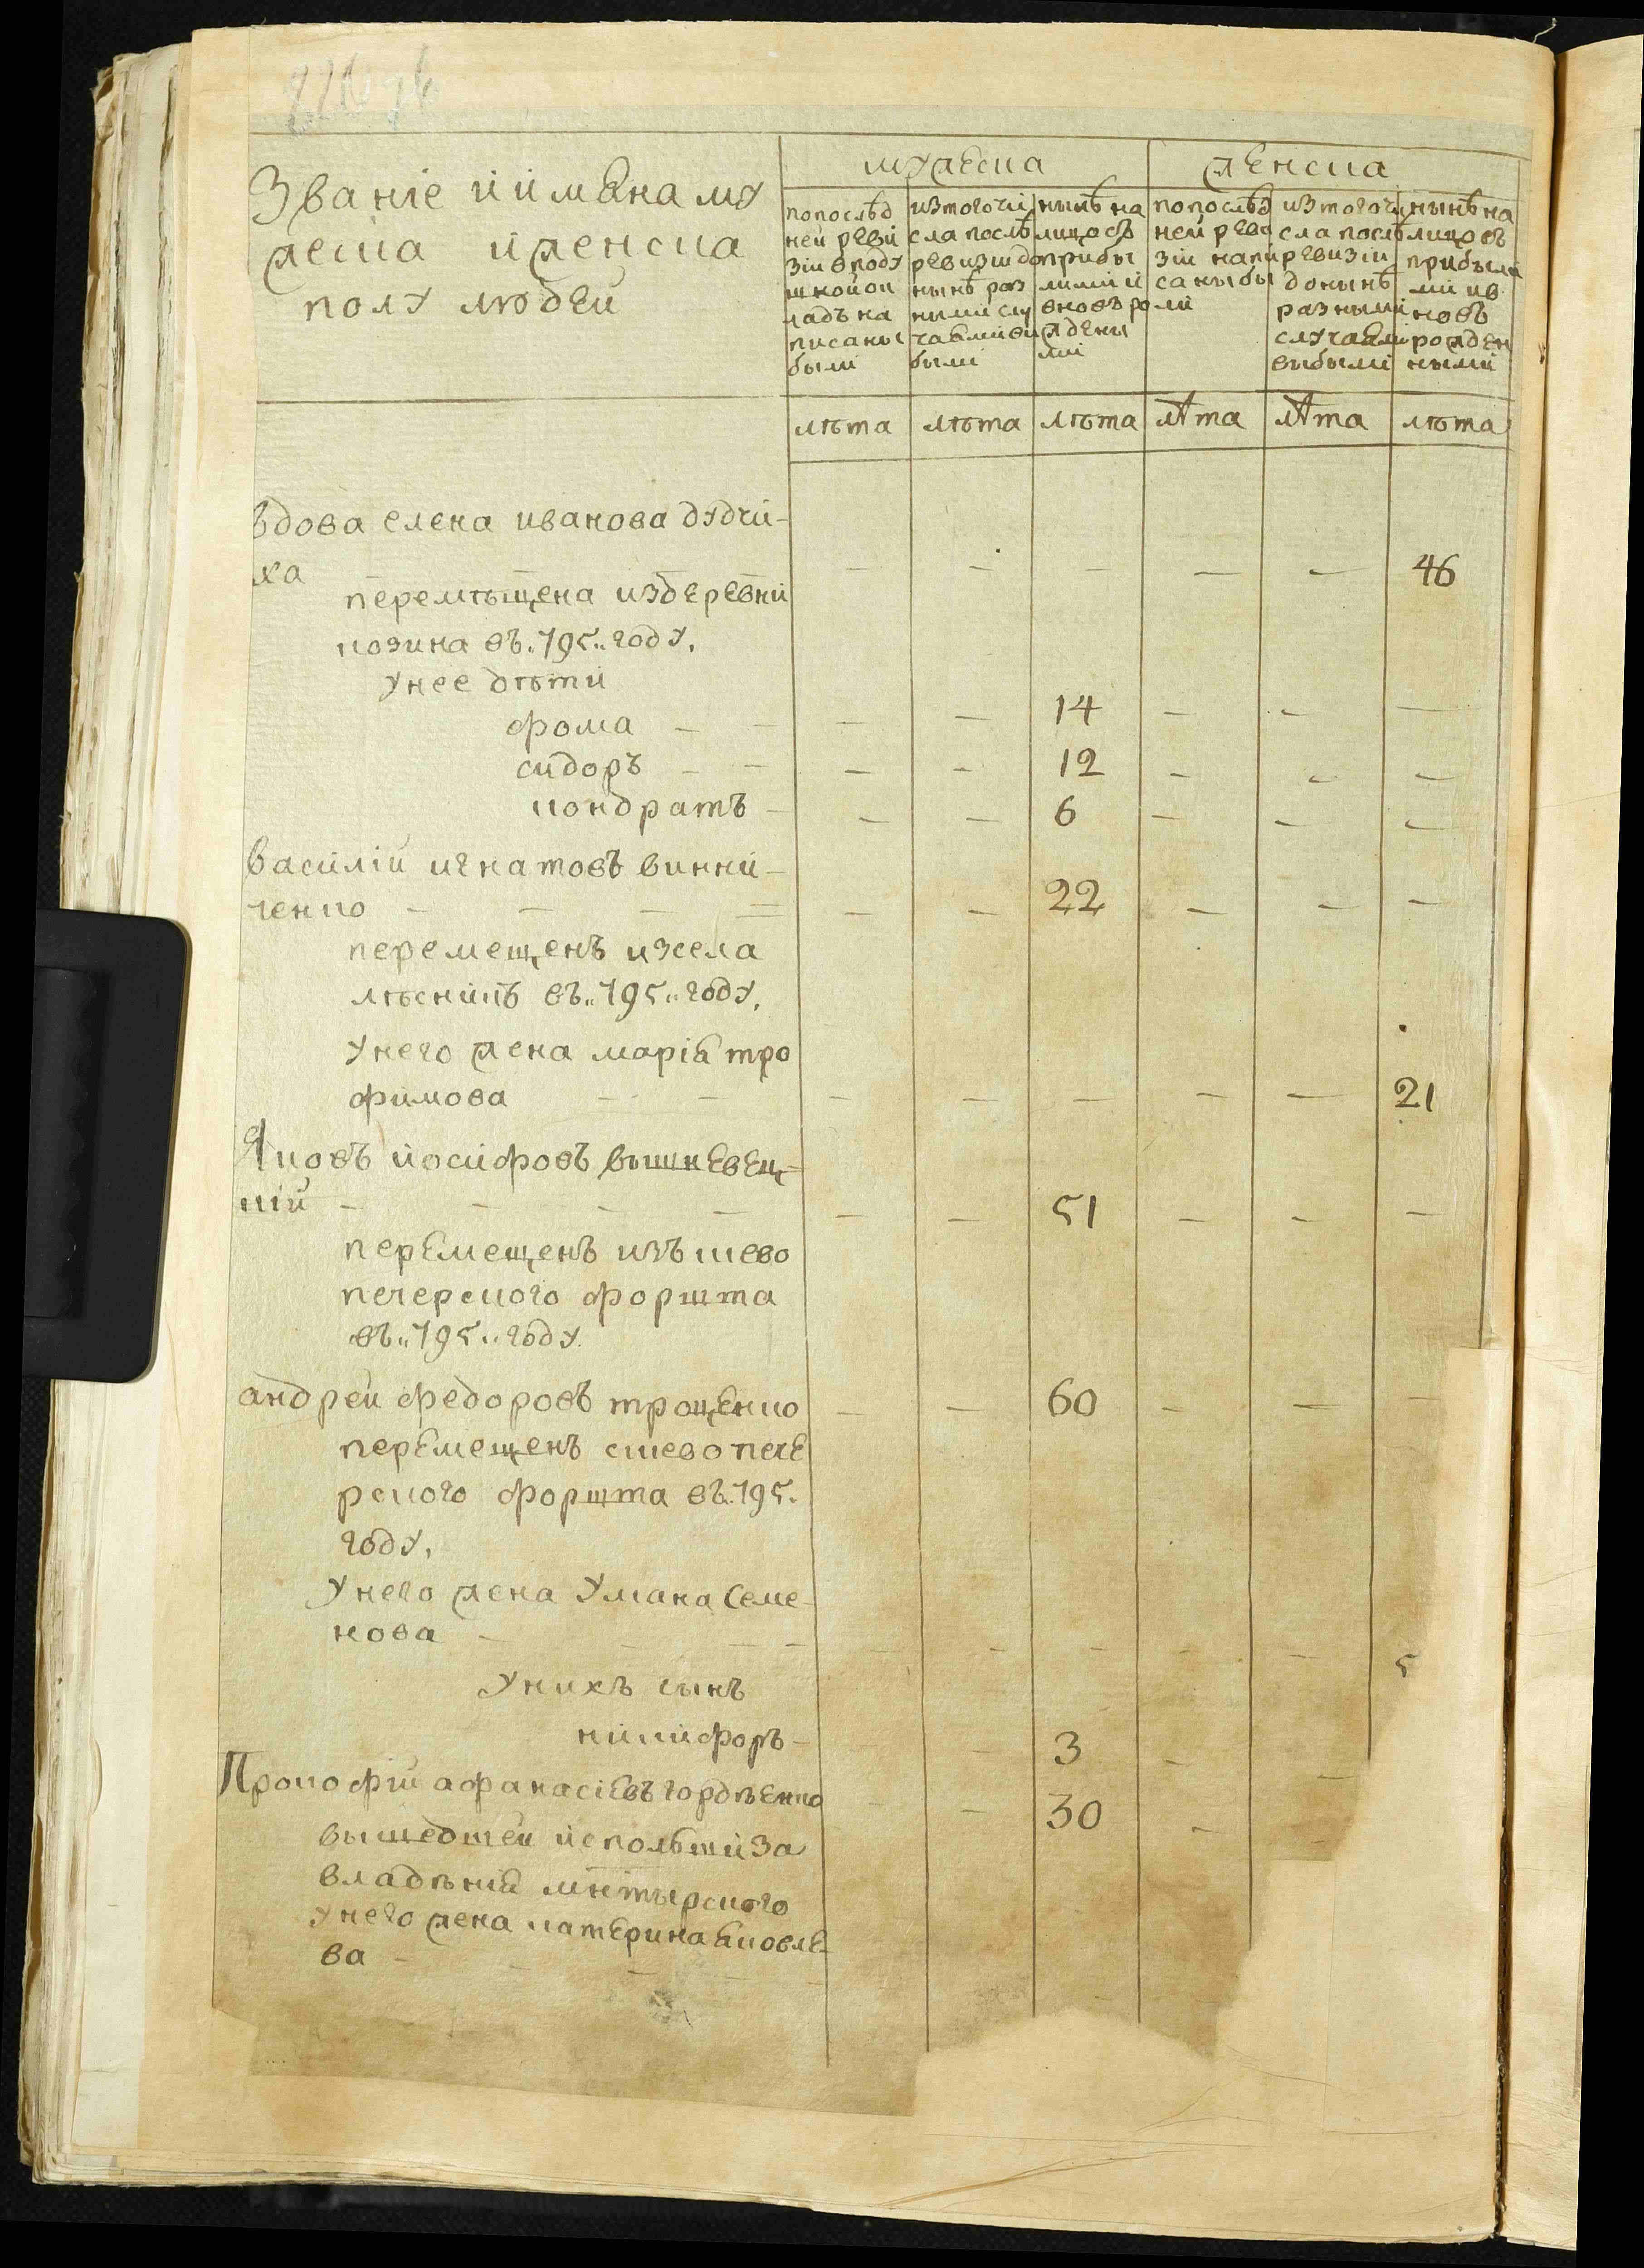 Званіе и имѧна му
жеска и женска
полу людей
мужеска
женска
попослѣд
ней реви
зіи вподу
шной ок
ладъ на
писаны
были
изтогочи
сла послѣ
ревизіи до
нынѣ раз
ными слу
чаѧми ви
были
нынѣ на
лицо съ
прибы
лими и
вновъ ро
ждены
ми
попослѣд
ней реви
зіи напи
саны бы
ли
изтогочи
сла послѣ
ревизіи
донынѣ
разными
случаѧми
выбыли
нынѣ на
лицо съ
прибылі
ми ив
новъ
рожден
ными
лѣта лѣта лѣта лѣта лѣта лѣта
Вдова елена иванова дудчи-
ха - - - - - 46
перемѣщена издеревни
козина въ„795„году,
унее дѣти
фома - - - - 14 - - -
сидоръ - - - - 12 - - -
кондратъ - - - 6 - - -
василій игнатовъ винни-
ченко - - - = - - 22 - - -
перемещенъ изсела
лѣсникъ въ„795„году,
унего жена маріѧ тро
фимова - - - - - - - 21
Яковъ иосифовъ вышневец-
кій - - - - - - 51 - - -
перемещенъ изъ киево
печерского форшта
въ„795„году.
андрей федоровъ трощенко - - 60 - - -
перемещенъ скиевопече
рского форшта въ„795„
году,
Унего жена Улиана Семе-
нова - - - - - - - - - 5
Унихъ сынъ
никифоръ - - - 3 - -
Прокофій афанасіевъ гордѣенко - - 30 -
вышедшей исполши за
владѣніѧ мнтырского
унего жена катерина ѧковле-
ва - - - - -